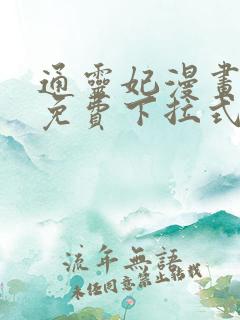 通靈妃漫畫
免費下拉式
流年無語
未经同意禁止转载